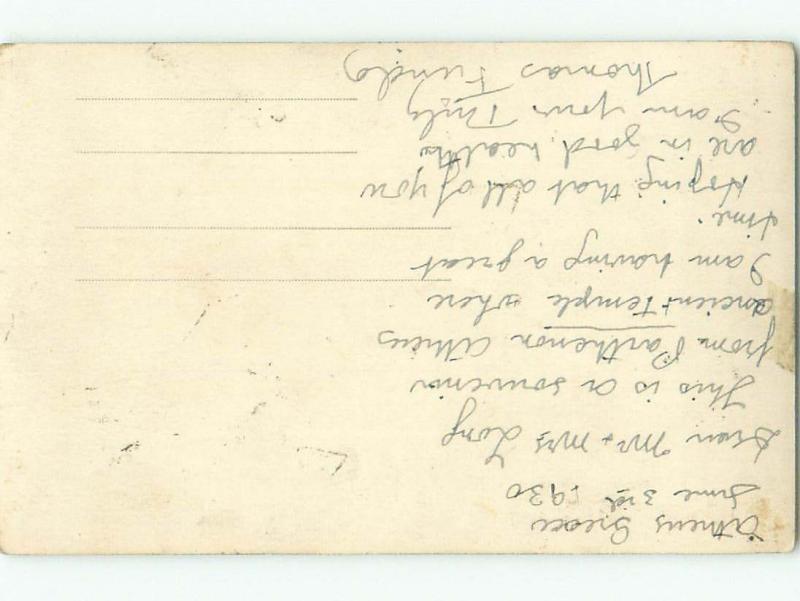 Athens Greece
June 3rd 1930
Dear Mr + Mrs Long
This is a souvenir
from Parthenon Athens
ancient temple where
I am having a great
time.
Hoping that all of you
are in good health
I am your Truly
Thomas